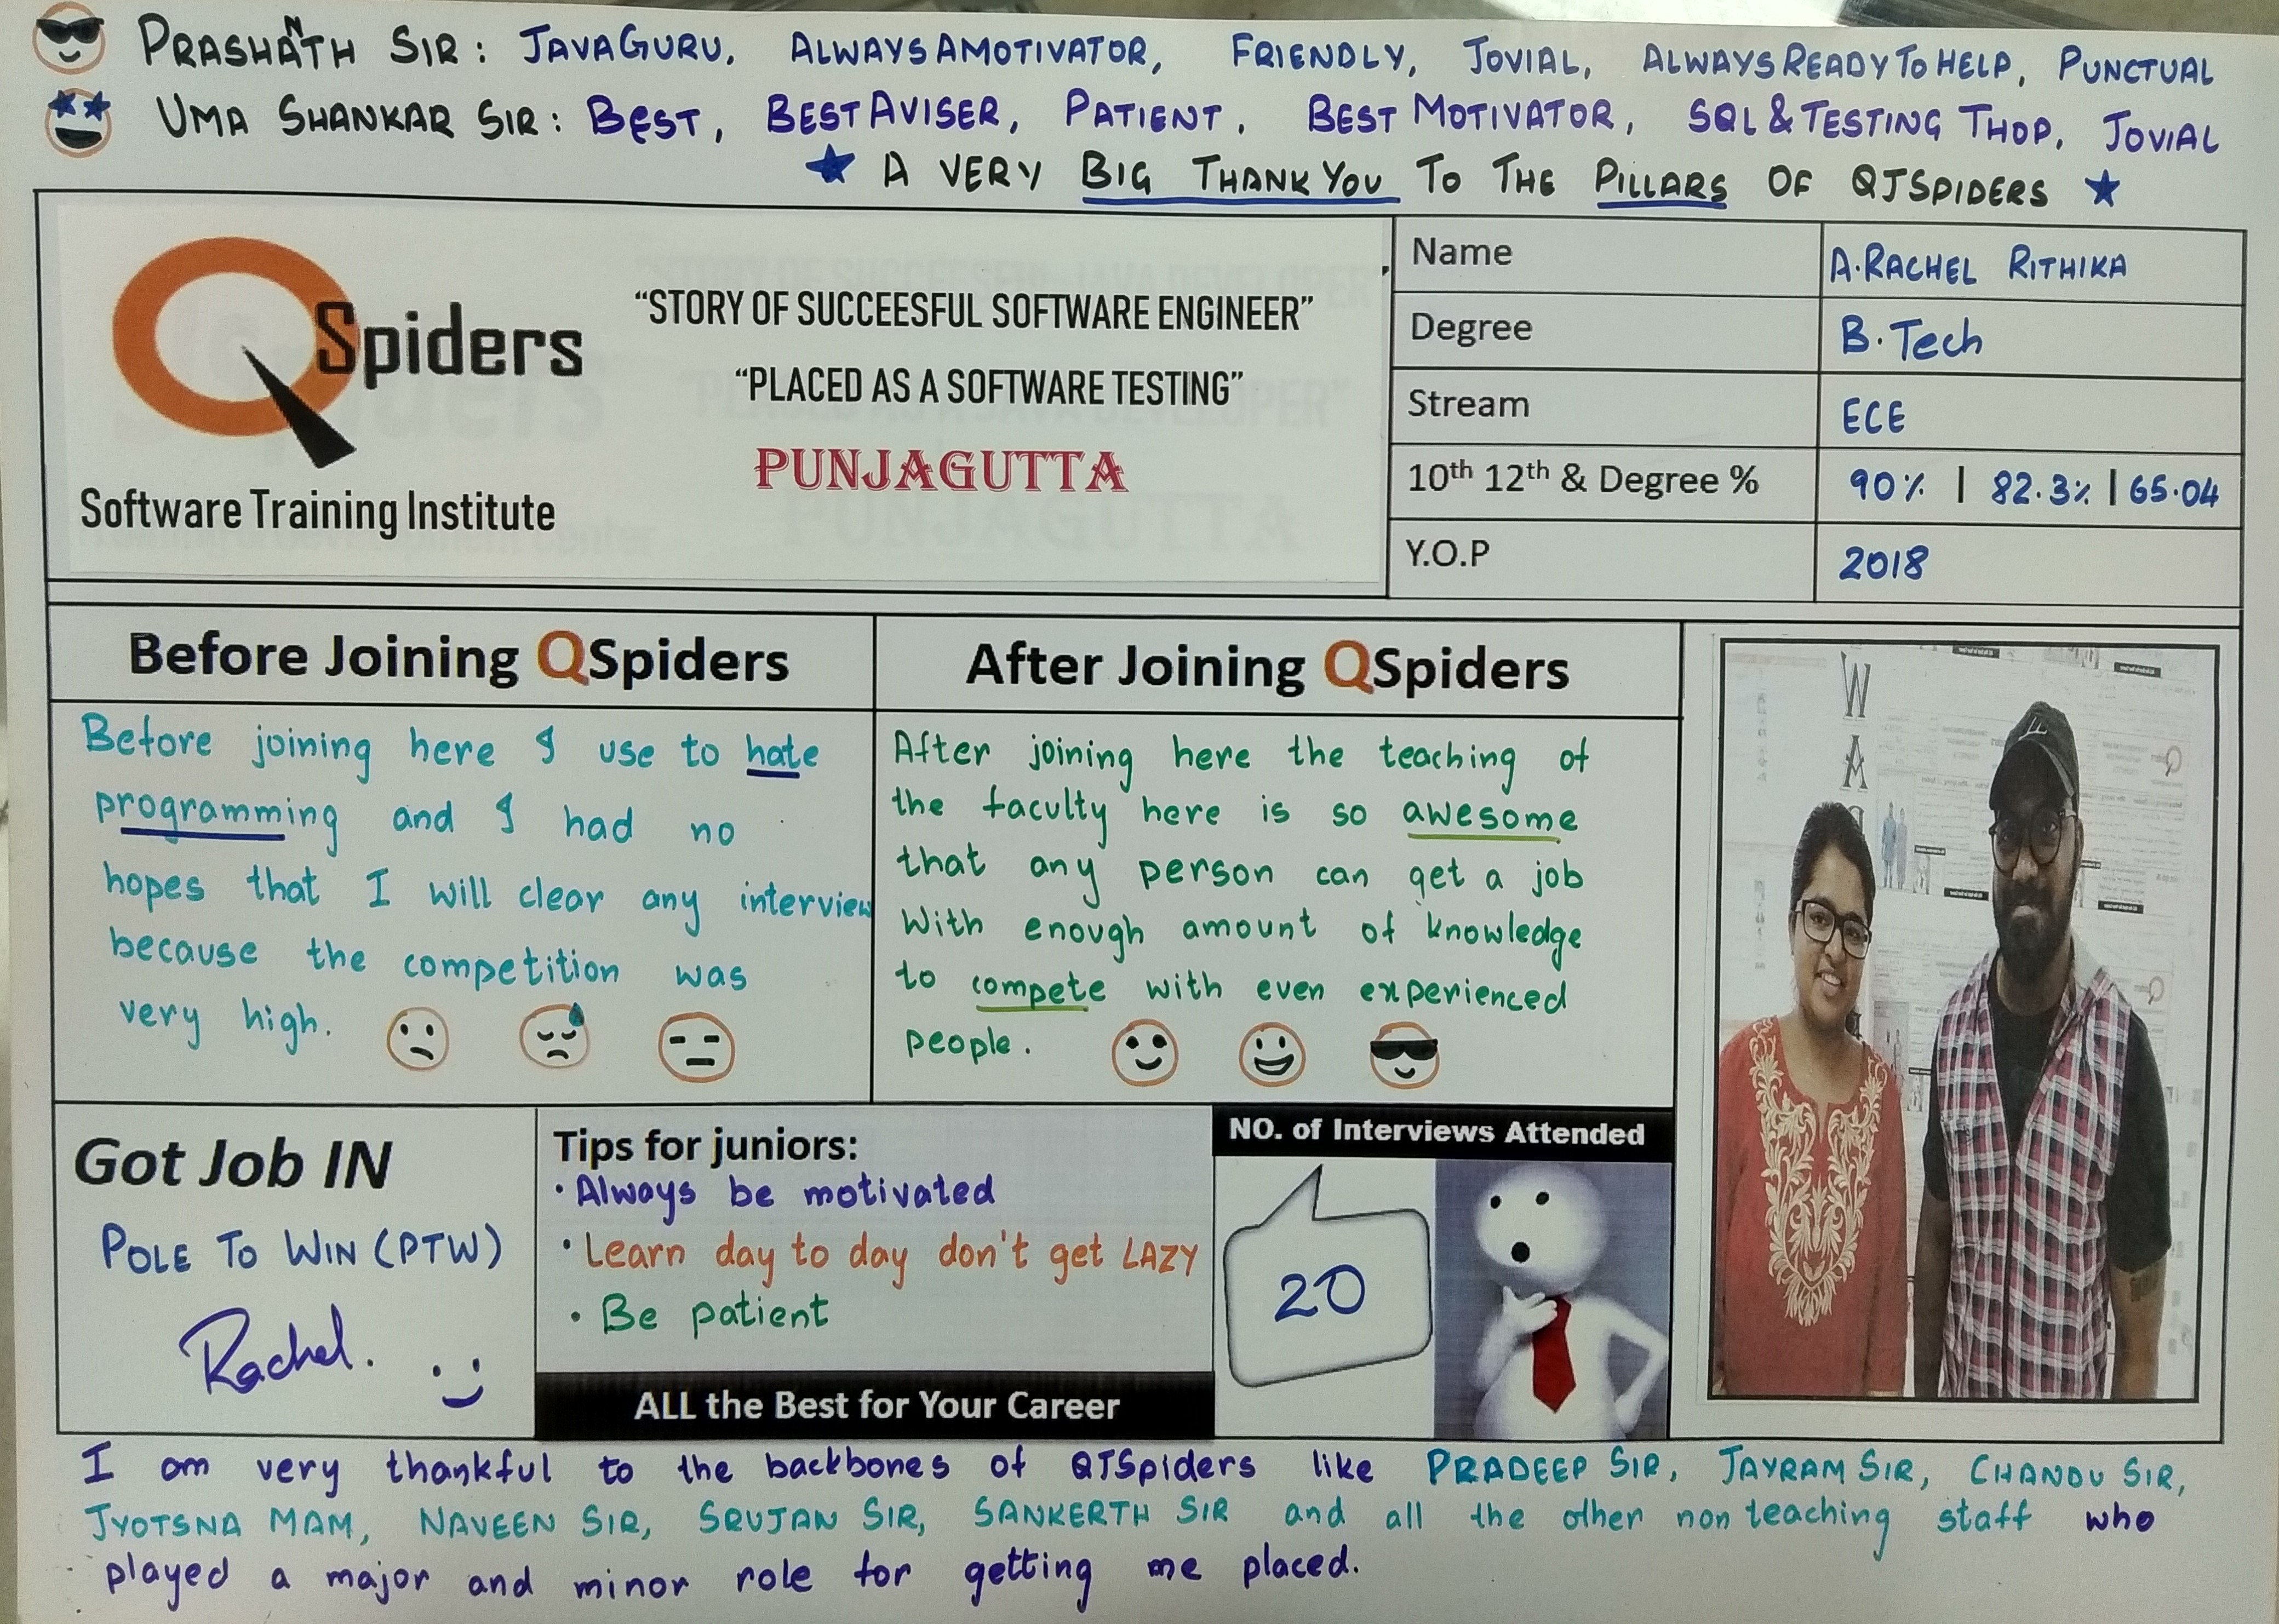 PRASHANTH SIR: JAVAGURU, ALWAYS A MOTIVATOR, FRIENDLY, JOVIAL, ALWAYS READY TO HELP, PUNCTUAL
UMA SHANKAR SIR: BEST, BEST AVISER, PATIENT, BEST MOTIVATOR, SQL & TESTING THOP, JOVIAL
★ A VERY BIG THANK YOU TO THE PILLARS OF QJSPIDERS ★
QSpiders
Software Training Institute
“STORY OF SUCCEESFUL SOFTWARE ENGINEER”
“PLACED AS A SOFTWARE TESTING”
PUNJAGUTTA
Name A. RACHEL RITHIKA
Degree B.Tech
Stream ECE
10th 12th & Degree % 90% | 82.3% | 65.04
Y.O.P 2018
Before Joining QSpiders
Before joining here I use to hate
programming and I had no
hopes that I will clear any interview
because the competition was
very high.
After Joining QSpiders
After joining here the teaching of
the faculty here is so awesome
that any person can get a job
With enough amount of knowledge
to compete with even experienced
people.
W
A
Got Job IN
POLE TO WIN (PTW)
Rachel.
Tips for juniors:
• Always be motivated
• Learn day to day don't get LAZY
• Be patient
ALL the Best for Your Career
NO. of Interviews Attended
20
I am very thankful to the backbones of QJSpiders like PRADEEP SIR, JAYRAM SIR, CHANDU SIR,
JYOTSNA MAM, NAVEEN SIR, SRUJAN SIR, SANKERTH SIR and all the other non teaching staff who
played a major and minor role for getting me placed.